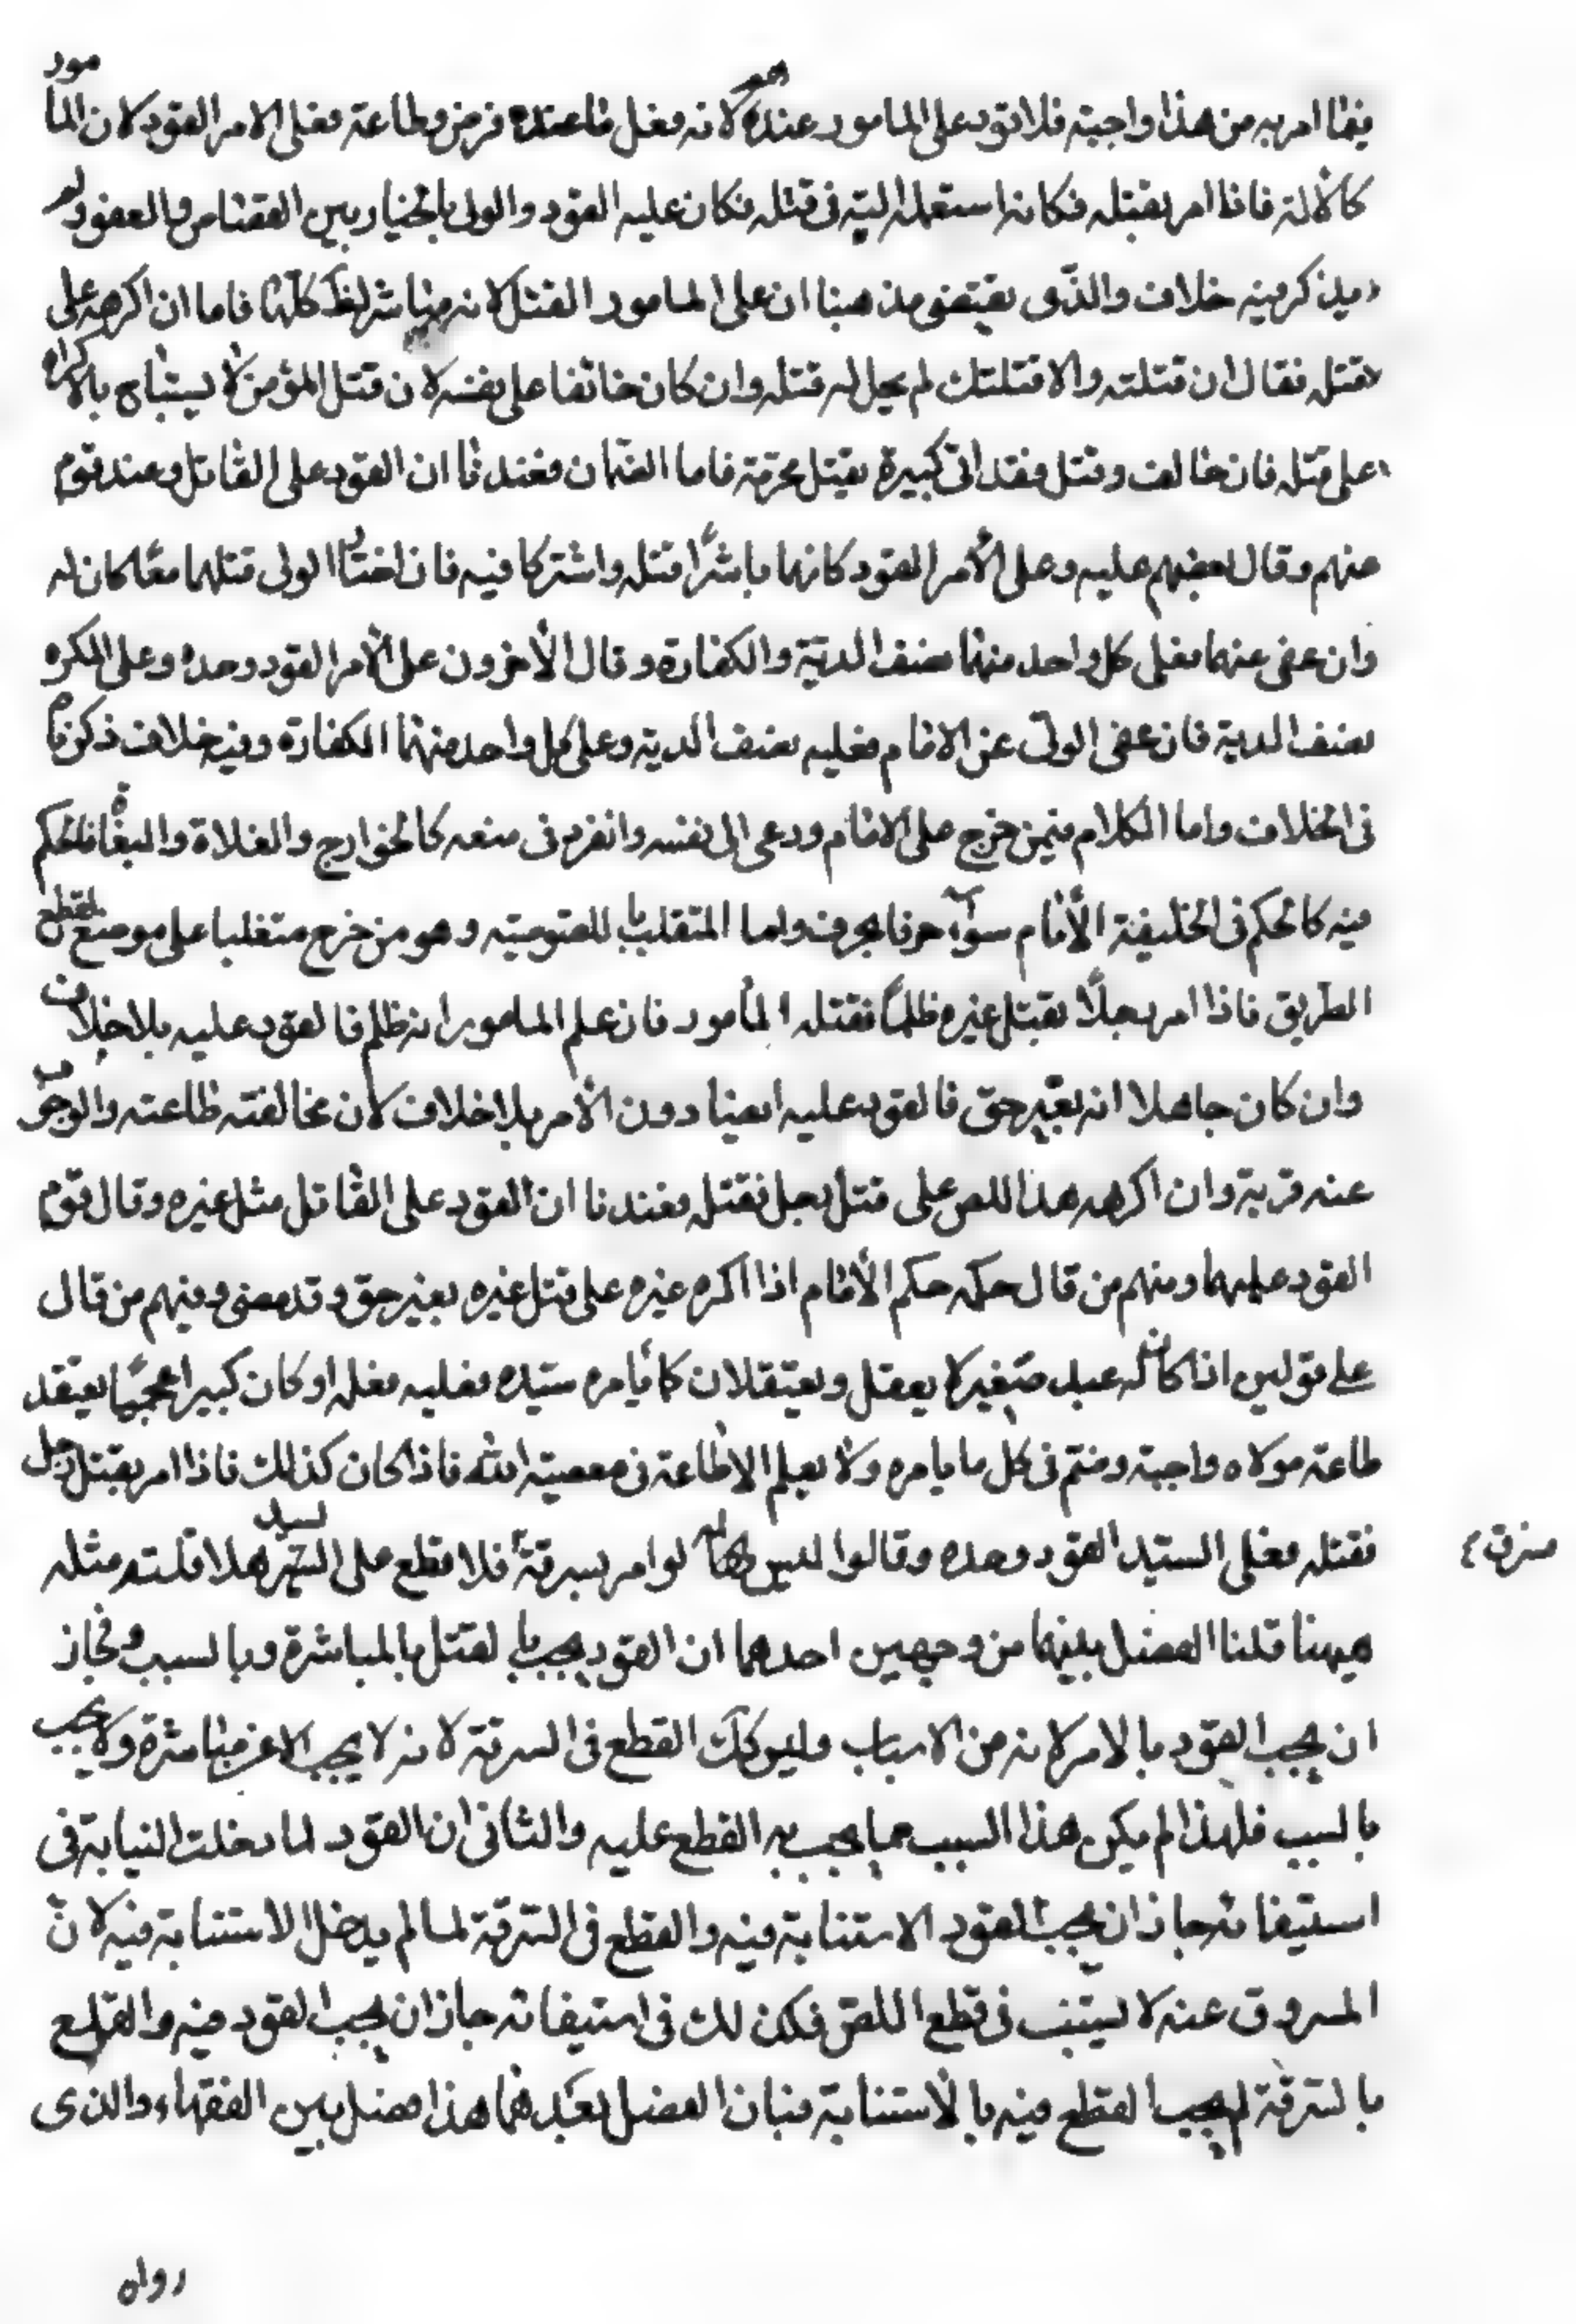 فيما امر به من هذا واجبة فلا قود على المامور عندهم لانه فعل ما عنده فرض وطاعة فعلى الامر القود لان المأمور
كالالة فاذا امر بقتله فكانه استعمل الته فى قتله فكان عليه القود والولى بالخيار بين القصاص والعفو ولم
يذكر فيه خلاف والذى يقتضى مذهبنا ان على المامور القتل لانه مباشر كلها فاما ان اكرهه على
قتله فقال ان قتلته والا قتلتك لم يحل له قتله وان كان خائفا على نفسه لان قتل المؤمن لا يستباح بالاكراه
على قتله فان خالف وقتل فقد اتى كبيرة بقتل محرمة فاما الضمان فعندنا ان القود على القاتل وعند قوم
منهم وقال بعضهم عليه وعلى الأمر القود كانهما باشرا قتله واشتركا فيه فان اختار الولى قتلهما معًا كان له
وان عفى عنهما فعلى كل واحد منهما نصف الدية والكفارة وقال الأخرون على الأمر القود وحده وعلى المكره
نصف الدية فان عفى الولى عن الامام فعليه نصف الدية وعلى كل واحد منهما الكفارة وفيه خلاف ذكرناه
فى الخلاف واما الكلام فيمن خرج على الامام ودعى الى نفسه وانفرد فى منعه كالخوارج والغلاة والبغاة فالحكم
فيه كالحكم فى الخليفة الأمام سوآء حرفا بحرف واما المتغلب باللصوصية وهو من خرج متغلبا على موضع لقطع
الطريق فاذا امر رجلًا بقتل غيره ظلمًا فقتله المأمور فان علم المامور انه ظلم فالقود عليه بلا خلاف
وان كان جاهلا انه بغير حق فالقود عليه ايضا دون الأمر بلا خلاف لان مخالفته طاعته والوجو
عنه قربة وان اكرهه هذا اللص على قتل رجل فقتله فعندنا ان القود على القاتل مثل غيره وقال قوم
القود عليهما ومنهم من قال حكمه حكم الأمام اذا اكره غيره على قتل غيره بغير حق وقد مضى ومنهم من قال
على قولين اذا كان له عبد صغير لا يعقل ويعتقد ان كلما يامره سيده فعليه فعله او كان كبيرا اعجميًا يعتقد
طاعة مولاه واجبة وحتم فى كل ما يامره ولا يعلم الا طاعة فى معصية الله فاذا كان كذلك فاذا امر بقتل رجل
فقتله فعلى السيد القود وحده وقالوا ليس لو امر بسرقة فلا قطع على السيد هلا قلت مثله
هيهنا قلنا الفصل بينهما من وجهين احدهما ان القود يجب بالقتل بالمباشرة وبالسبب فجاز
ان يجب القود بالامر لانه من الاسباب وليس كك القطع فى السرقة لانه لا يجب الا عن مباشرة ولا يجب
بالسبب فلهذا لم يكن هذا السبب مما يجب به القطع عليه والثانى ان القود لما دخلت النيابة فى
استيفائه جاز ان يجب القود الاستنابة فيه والقطع فى السرقة لما لم يدخل الاستنابة فيه لان
المسروق عنه لا يستنب فى قطع اللص فكذلك فى استيفائه جاز ان يجب القود فيه والقطع
بالسرقة لم يجب القطع فيه بالاستنابة فبان الفصل بينهما هذا فصل بين الفقهاء والذى
رواه